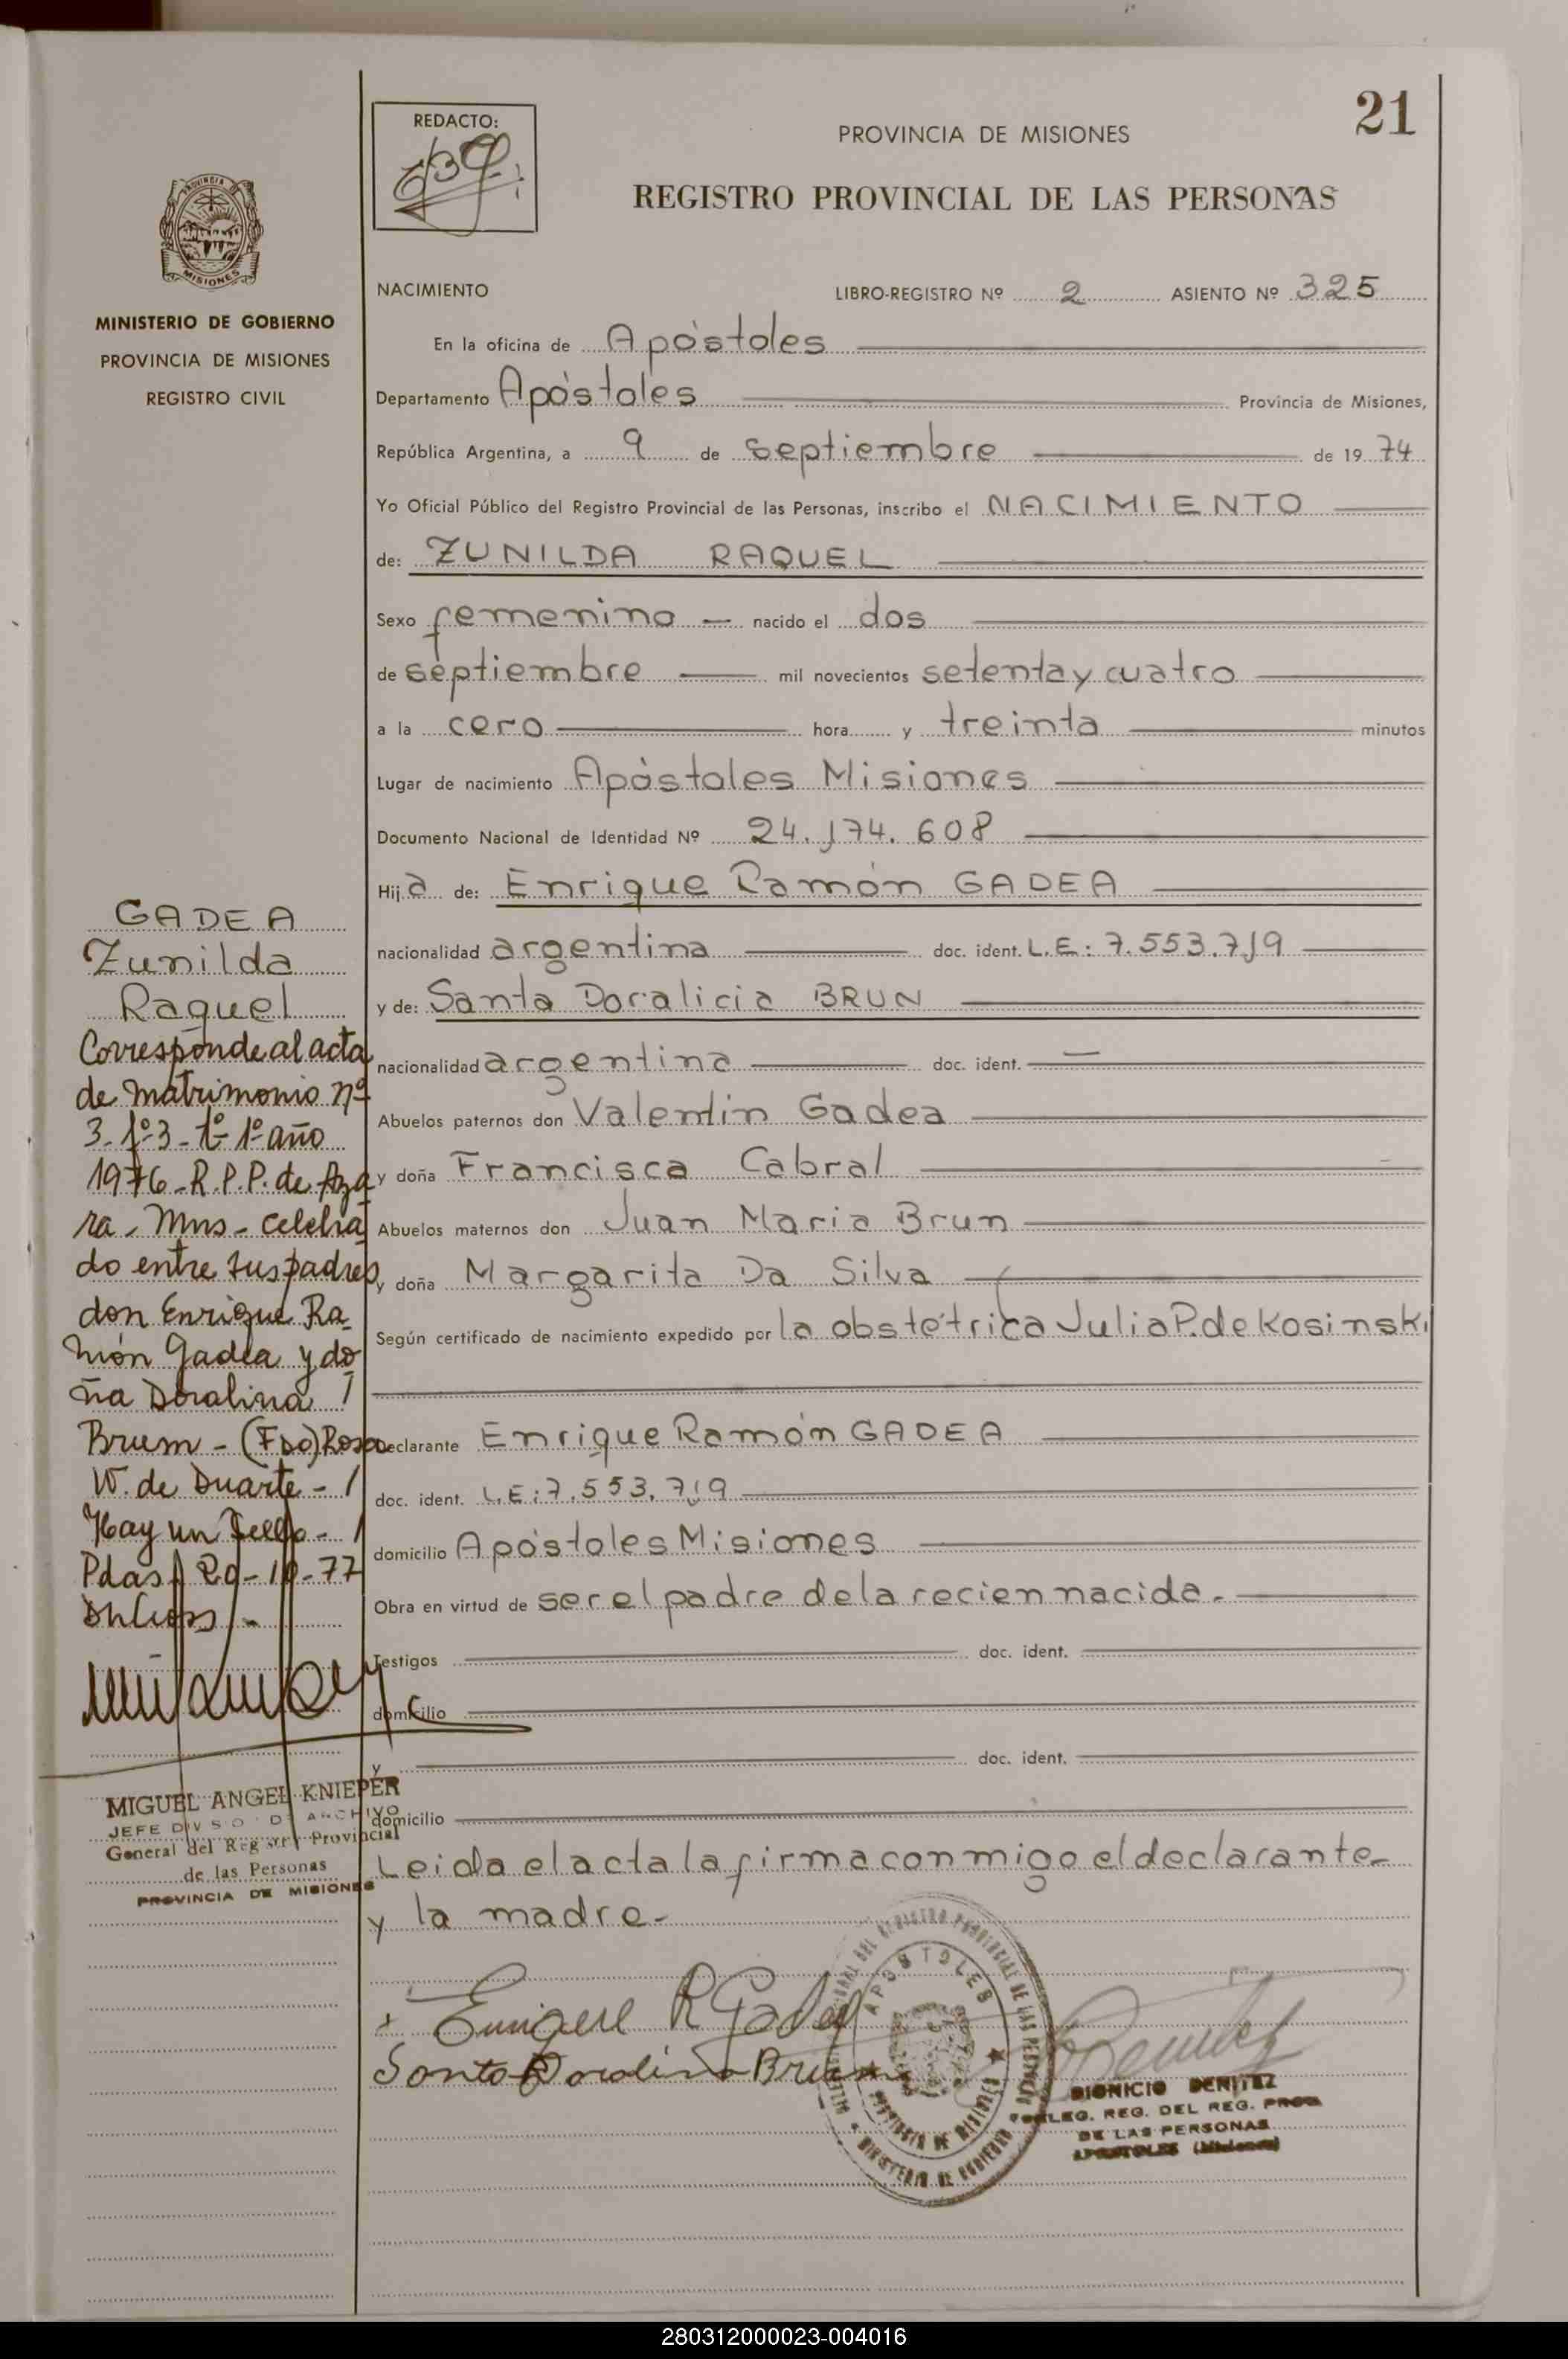 21
REDACTO:
PROVINCIA DE MISIONES
REGISTRO PROVINCIAL DE LAS PERSONAS
PROVINCIA DE
MISIONES
MINISTERIO DE GOBIERNO
PROVINCIA DE MISIONES
REGISTRO CIVIL
NACIMIENTO LIBRO-REGISTRO Nº 2 ASIENTO Nº 325
En la oficina de Apóstoles
Departamento Apóstoles Provincia de Misiones,
República Argentina, a 9 de septiembre de 19 74
Yo Oficial Público del Registro Provincial de las Personas, inscribo el NACIMIENTO
de: ZUNILDA RAQUEL
Sexo femenino — nacido el dos
de septiembre — mil novecientos setenta y cuatro
a la cero hora y treinta minutos
Lugar de nacimiento Apóstoles Misiones
Documento Nacional de Identidad Nº 24.174.608
Hija de: Enrique Ramón GADEA
nacionalidad argentina doc. ident. L.E: 7.553.719
y de: Santa Doralicia BRUN
nacionalidad argentina doc. ident. —
Abuelos paternos don Valentin Gadea
y doña Francisca Cabral
Abuelos maternos don Juan Maria Brun
y doña Margarita Da Silva
Según certificado de nacimiento expedido por la obstétrica Julia P. de Kosinski
Declarante Enrique Ramón GADEA
doc. ident. L.E: 7.553.719
domicilio Apóstoles Misiones
Obra en virtud de ser el padre de la recien nacida.
Testigos doc. ident.
domicilio
y doc. ident.
domicilio
Leida el acta la firma conmigo el declarante
y la madre-
GADEA
Zunilda
Raquel
Corresponde al acta
de matrimonio nº
3-fº3-tº 1º año
1976-R.P.P. de Aza
ra-Mns-celebra
do entre sus padres
don Enrique Ra-
món Gadea y do
ña Doralina
Brum-(Fdo) Rosa
W. de Duarte-
Hay un sello-
Pdas 20-10-77
MIGUEL ANGEL KNIEPER
JEFE DIVISIO DE ARCHIVO
General del Registro Provincial
de las Personas
PROVINCIA DE MISIONES
Enrique R Gadea
Santa Doralina Brum
APOSTOLES
PROVINCIA DE MISIONES
MINISTERIO DE GOBIERNO
DIONICIO BENITEZ
DELEG. REG. DEL REG. PROV.
DE LAS PERSONAS
APOSTOLES (Misiones)
280312000023-004016